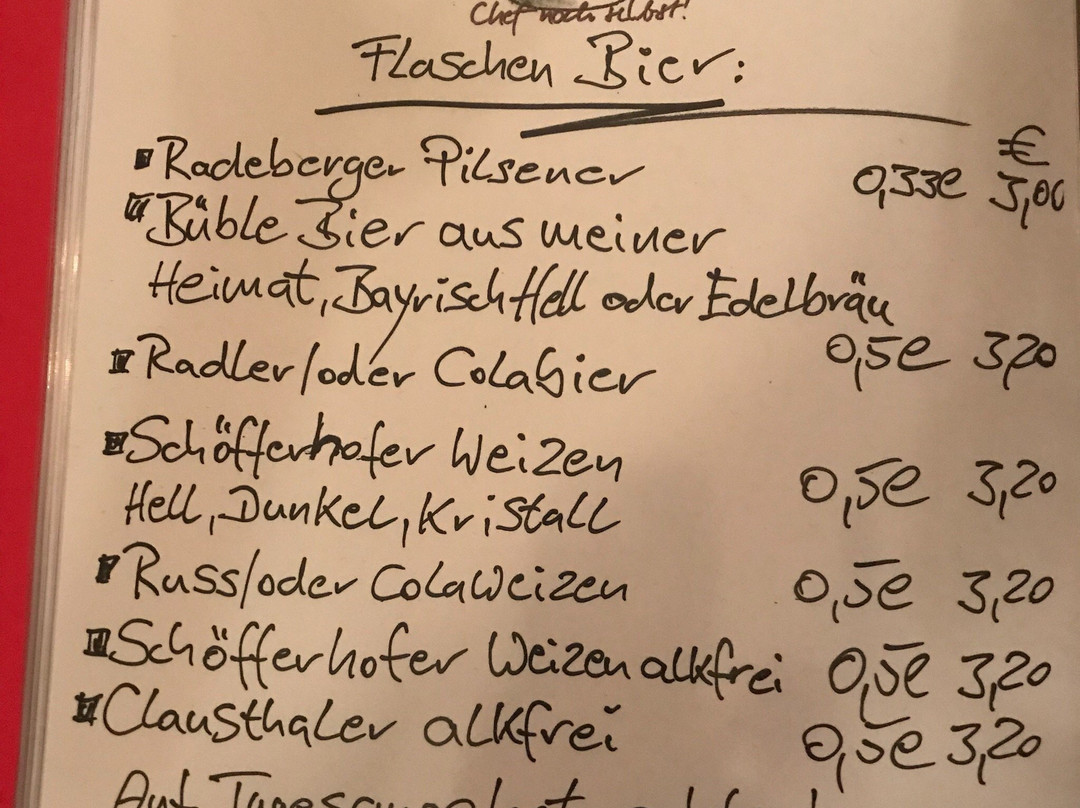 Chef noch selbst!
Flaschen Bier:
€
Radeberger Pilsener 0,33l 3,00
Büble Bier aus meiner
Heimat, Bayrisch Hell oder Edelbräu
0,5l 3,20
Radler/oder Colabier
Schöfferhofer Weizen
0,5l 3,20
Hell, Dunkel, Kristall
Russ/oder ColaWeizen 0,5l 3,20
Schöfferhofer Weizen alkfrei 0,5l 3,20
Clausthaler alkfrei 0,5l 3,20
Auf